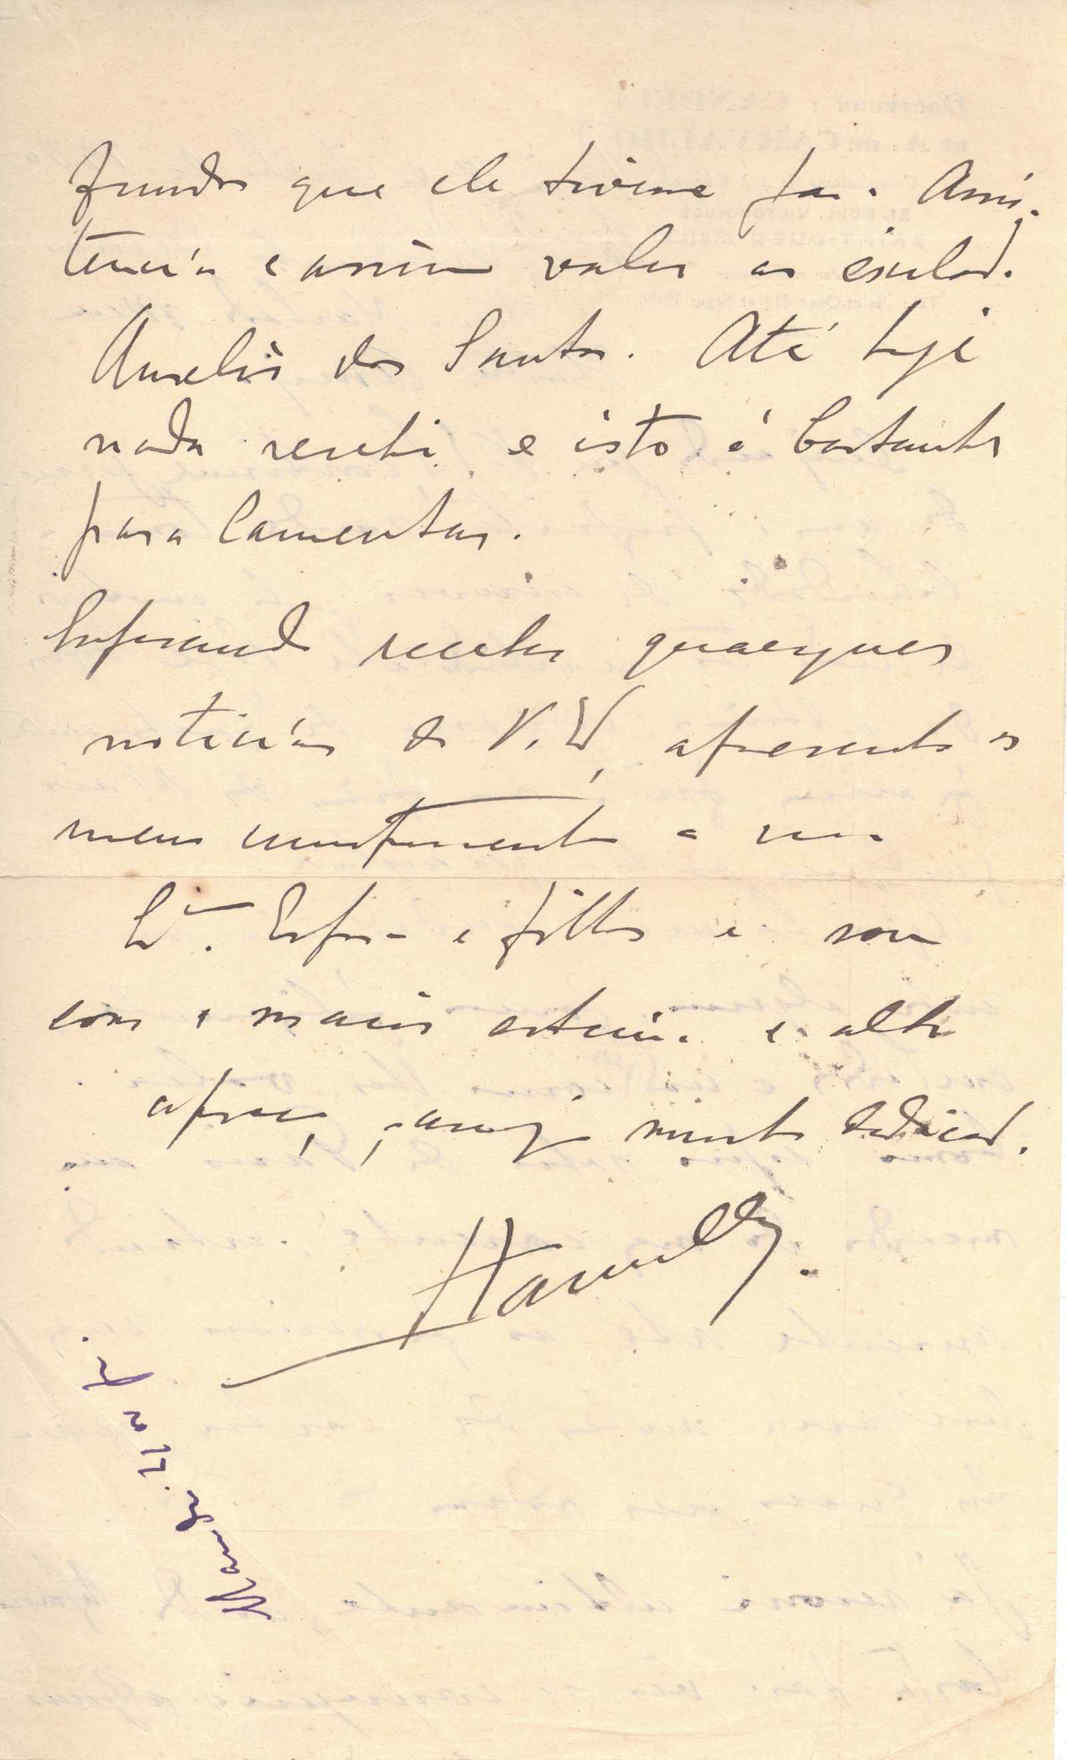 fundos que ele tivesse para Assis-
tencia e assim valer ao exilado
Aurelio dos Santos. Até hoje
nada recebi e isto é bastante
para lamentar.
Esperando receber quaesquer
noticias de V. Ex, apresento os
meus cumprimentos a sua
Ex. Esposa e filhos e sou
com a maior estima e alto
apreço, amigo muito dedicado.